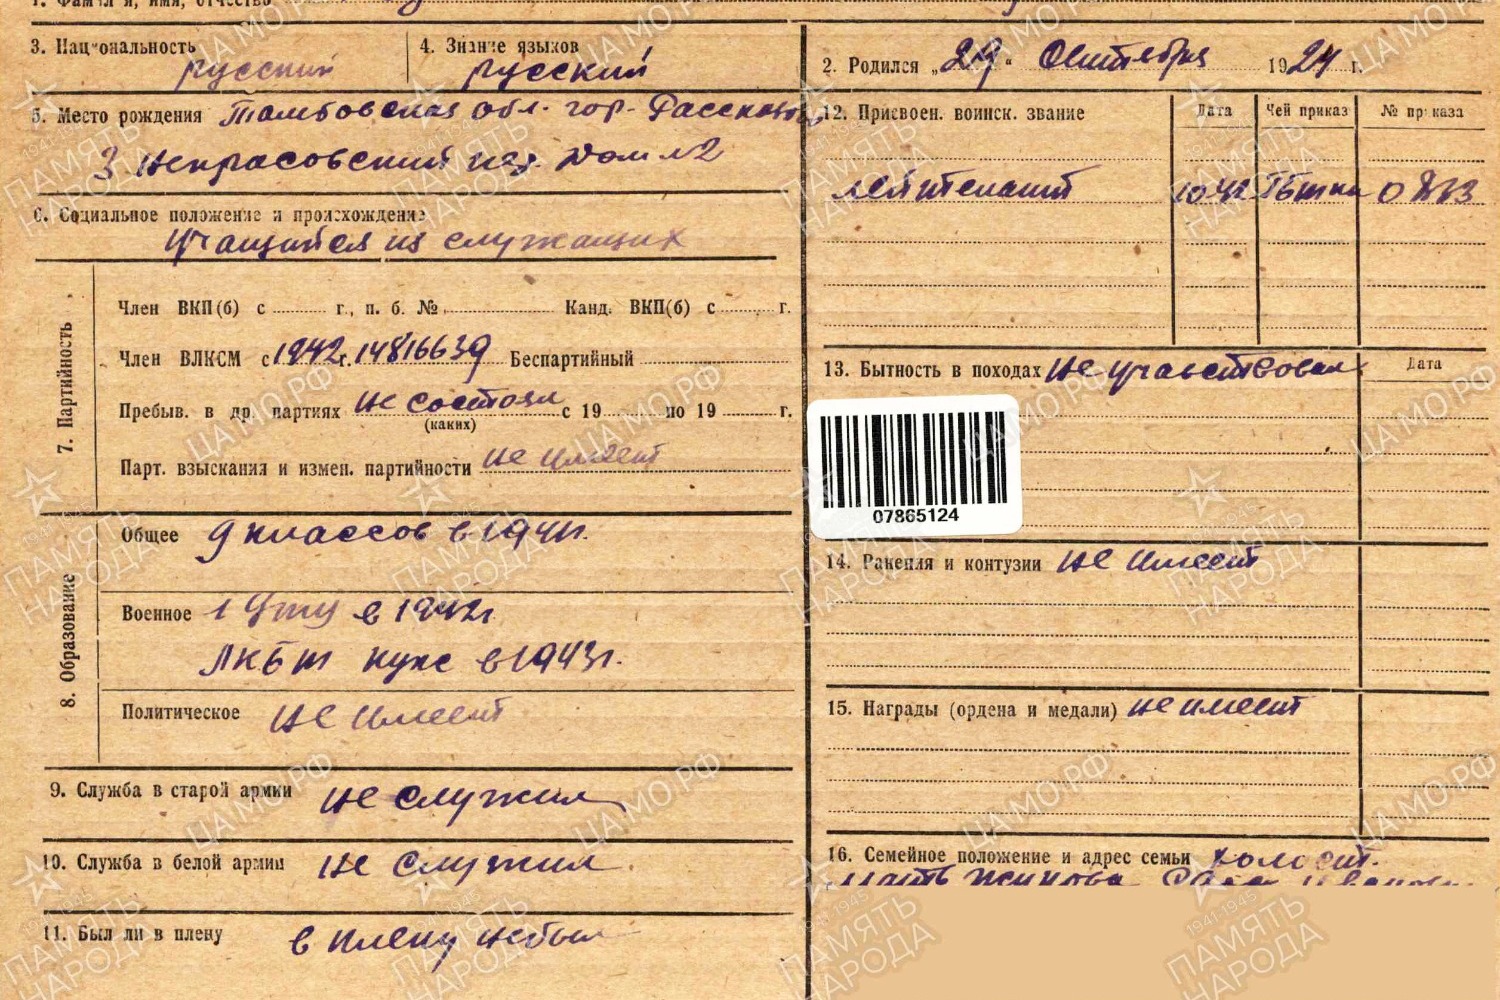 1. Фамилия, имя, отчество
3. Национальность русский
4. Знание языков русский
5. Место рождения Тамбовская обл. гор. Рассказово
3 Некрасовский пер. Дом №2
6. Социальное положение и происхождение
Учащийся из служащих
7. Партийность
Член ВКП(б) с г., п. б. № Канд. ВКП(б) с г.
Член ВЛКСМ с 1942 г. 14816639 Беспартийный
Пребыв. в др. партиях не состоял с 19 по 19 г.
(каких)
Парт. взыскания и измен. партийности не имеет
8. Образование
Общее 9 классов в 1941г.
Военное 1 в 1942г
ЛКБТ курс в 1943г.
Политическое не имеет
9. Служба в старой армии не служил
10. Служба в белой армии не служил
11. Был ли в плену в плену не был
2. Родился „29“ Октября 1924 г.
12. Присвоен. воинск. звание Дата Чей приказ № приказа
лейтенант
13. Бытность в походах не участвовал Дата
07865124
14. Ранения и контузии не имеет
15. Награды (ордена и медали) не имеет
16. Семейное положение и адрес семьи холост.
мать
ПАМЯТЬ НАРОДА
1941-1945
ЦАМО.РФ